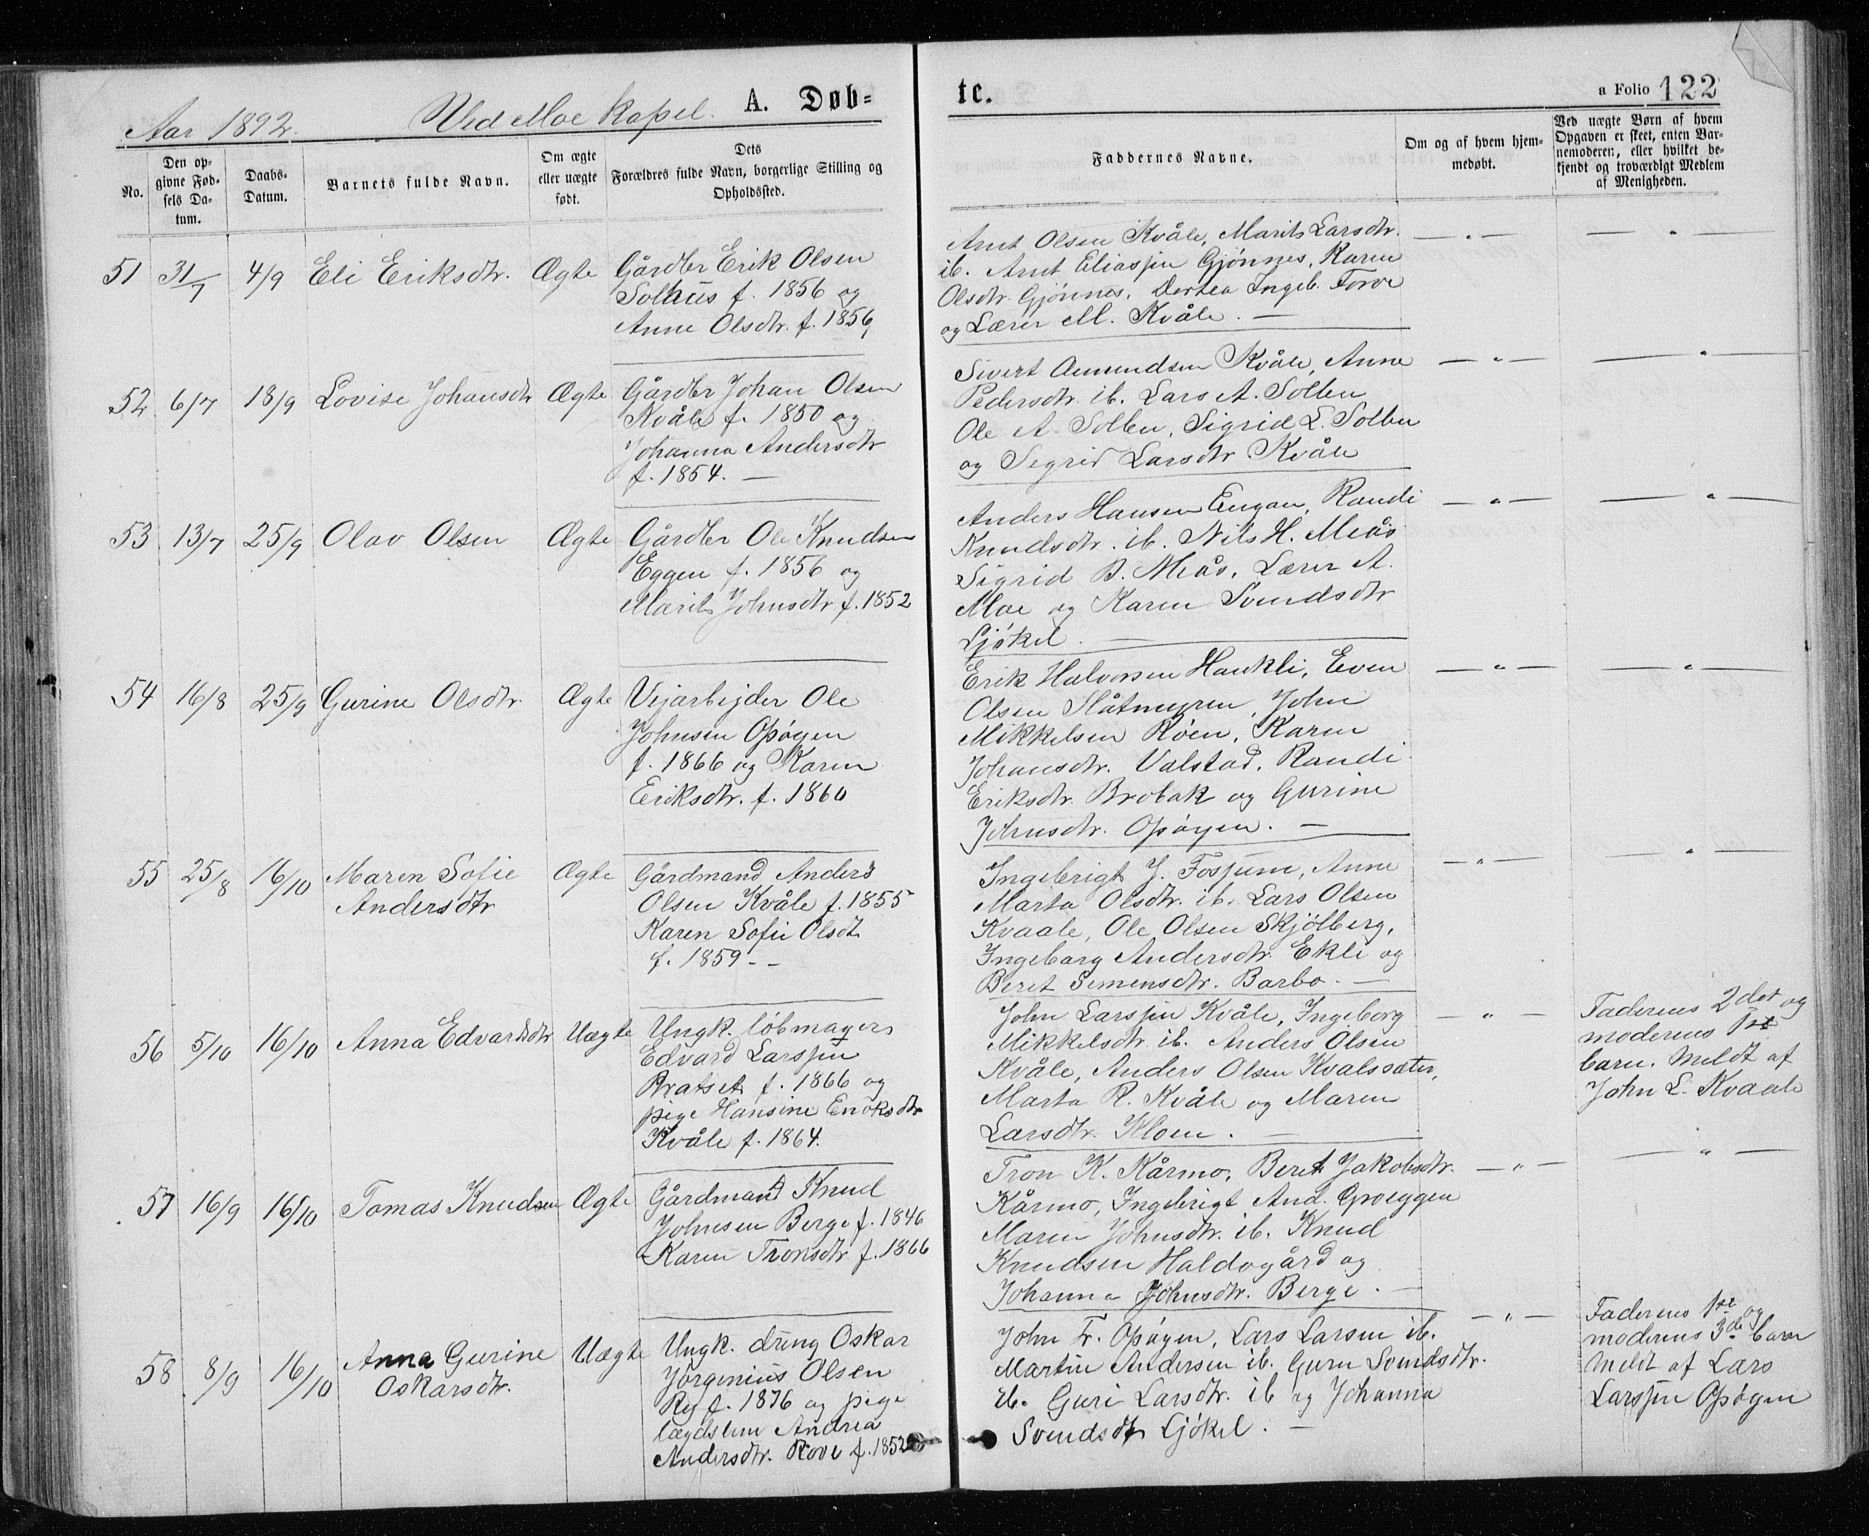 Aar 1892. Ved Moe kapel. A. Døb-
No.
Den op-
givne Fød-
sels Da-
tum.
Daabs-
Datum.
Barnets fulde Navn.
Om ægte
eller uægte
født.
Dets
Forældres fulde Navn, borgerlige Stilling og
Opholdssted.
51 31/7 4/9 Eli Eriksdtr. Ægte Gårdbr Erik Olsen
Solhus f. 1856 og
Anne Olsdtr. f. 1856
52 6/7 18/9 Lovise Johansdtr Ægte Gårdbr Johan Olsen
Kvåle f. 1850 og
Johanna Andersdtr
f. 1854. —
53 13/7 25/9 Olav Olsen Ægte Gårdbr Ole Knudsen
Eggen f. 1856 og
Marit Johnsdtr f. 1852
54 16/8 25/9 Gurine Olsdtr. Ægte Vejarbejder Ole
Johnsen Opøyen
f. 1866 og Karen
Eriksdtr. f. 1860
55 25/8 16/10 Maren Sofie Ægte Gårdmand Anders
Andersdtr Olsen Kvåle f. 1855
Karen Sofie Olsdt
f. 1859 - -
56 5/10 16/10 Anna Edvardsdtr Uægte Ungk. løbmager
Edvard Larssen
Bratset f. 1866 og
pige Hansine Enoksdtr
Kvåle f. 1864.
57 16/9 16/10 Tomas Knudsen Ægte Gårdmand Knud
Johnsen Berge f. 1846
Karen Tronsdtr f. 1866
58 8/9 16/10 Anna Gurine Uægte Ungk. dreng Oskar
Oskarsdtr. Jørgenius Olsen
Ry f. 1876 og pige
lægdslem Andrea
Andersdtr. Rove f. 1852
te. a Folio 122
Faddernes Navne.
Om og af hvem hjem-
medøbt.
Ved uægte Børn af hvem
Opgaven er skeet, enten Bar-
nemoderen, eller hvilket be-
kjendt og troværdigt Medlem
af Menigheden.
Arnt Olsen Kvåle, Marit Larsdtr. — „ — — „
ib. Arnt Eliassen Gjønnes, Karen
Olsdtr. Gjønnes, Dortea Ingeb. Forve
og Lærer M. Kvåle. —
Sivert Amundsen Kvåle, Anne — „ — — „
Pedersdtr. ib. Lars A. Solben
Ole A. Solben, Sigrid L. Solben
og Segrid Larsdtr Kvåle
Anders Hansen Engan, Randi — „ — — „ —
Knudsdtr. ib. Nils H. Meås
Sigrid B. Meås, Lærer A.
Moe og Karen Svendsdtr
Ljøkel. —
Erik Halvorsen Haukli, Even — „ — — „ —
Olsen Slåtmyren, John
Mikkelsen Røen, Karen
Johansdtr. Valstad, Randi
Eriksdtr. Brobak og Gurine
Johnsdtr. Opøyen. —
Ingebrigt J. Fossum, Anne — „ — — „ —
Marta Olsdtr. ib. Lars Olsen
Kvaale, Ole Olsen Skjølberg,
Ingeborg Andersdtr. Ekli og
Beret Simensdtr. Barbo. —
John Larssen Kvåle, Ingeborg — „ — Faderens 2det og
Mikkelsdtr. ib. Anders Olsen moderens 1ste
Kvåle, Anders Olsen Kvalssæter, barn. Meldt af
Marta R. Kvåle og Maren John L. Kvaale
Larsdtr. Kloen. —
Tron K. Kårmo, Beret Jakobsdtr. — „ — — „ —
Kårmo, Ingebrigt And. Groeggen
Maren Johnsdtr. ib. Knud
Knudsen Haldogård og
Johanna Johnsdtr. Berge. —
John Tr. Opøyen, Lars Larsen ib. — „ — Faderens 1ste og
Martin Andersen ib. Guru Svendsdtr. moderens 3de barn
ib. Guri Larsdtr. ib og Johanna Meldt af Lars
Svendsdtr Ljøkel. — Larssen Opøyen